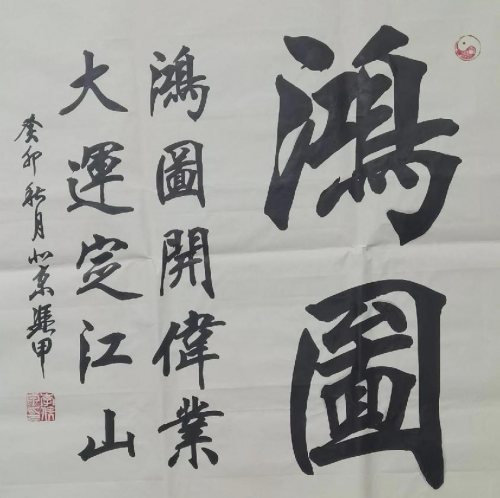 鴻圖
鴻圖開偉業
大運定江山
癸卯秋月北京縣甲